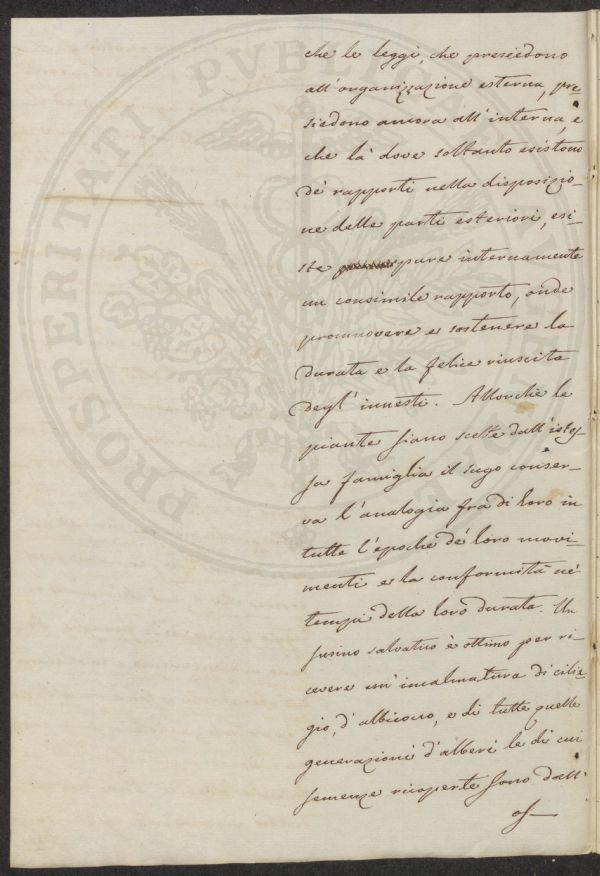 che le leggi, che presiedono
all'organizzazione esterna, pre-
siedono ancora all'interna, e
che là dove soltanto esistono
de' rapporti nella disposizio-
ne delle parti esteriori, esi-
ste pure internamente
un consimile rapporto, onde
promuovere e sostenere la
durata e la felice riuscita
degl' innesti. Allorchè le
piante siano scelte dall'istes-
sa famiglia il sugo conser-
va l'analogia fra di loro in
tutte l'epoche de' loro movi-
menti e la conformità ne'
tempi della loro durata. Un
susino salvatico è ottimo per ri-
cevere un' incalmatura di cilie-
gio, d'albicocco, e di tutte quelle
generazioni d'alberi le di cui
semenze ricoperte sono dall'
os-
PROSPERITATI PVBLICAE